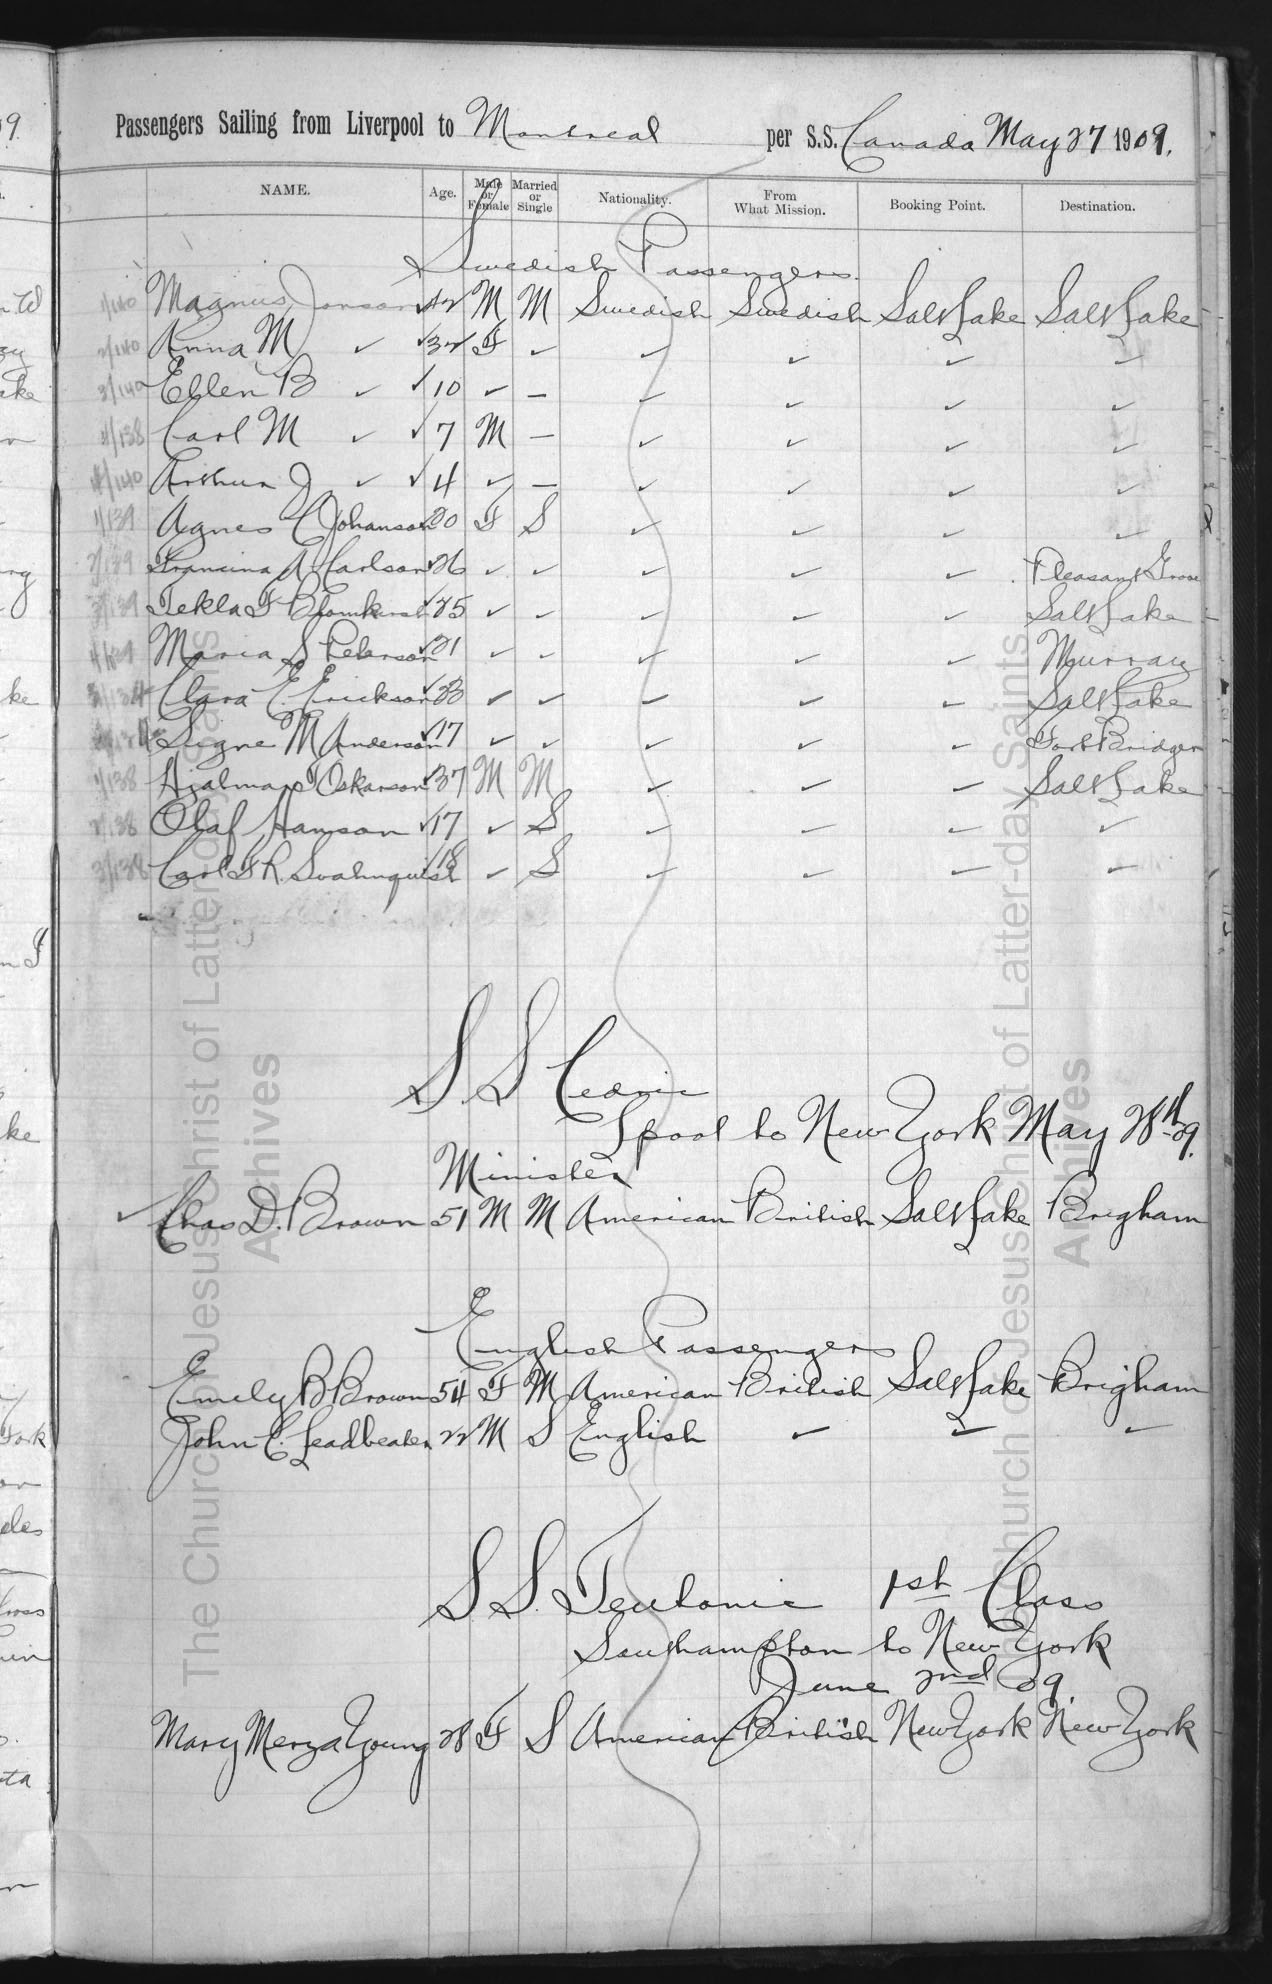 Passengers Sailing from Liverpool to Montreal per S.S. Canada May 27 1909.
NAME. Age. Male or Female Married or Single Nationality. From What Mission. Booking Point. Destination.
Swedish Passengers.
1/140 Magnus Jonson ✓ 42 M M Swedish Swedish Salt Lake Salt Lake
2/140 Anna M ✓ ✓ 32 F ✓ ✓ ✓ ✓ ✓
3/140 Ellen B ✓ ✓ 10 ✓ – ✓ ✓ ✓ ✓
4/138 Carl M ✓ ✓ 7 M – ✓ ✓ ✓ ✓
4/140 Arthur J ✓ ✓ 4 ✓ – ✓ ✓ ✓ ✓
1/139 Agnes C Johanson ✓ 20 F S ✓ ✓ ✓ ✓
2/139 Francina A Carlson ✓ 26 ✓ ✓ ✓ ✓ ✓ Pleasant Grove
3/139 Tekla F Blomkvist ✓ 25 ✓ ✓ ✓ ✓ ✓ Salt Lake
4/139 Maria S Peterson ✓ 21 ✓ ✓ ✓ ✓ ✓ Murray
Clara E. Erickson ✓ 23 ✓ ✓ ✓ ✓ ✓ Salt Lake
Signe M Anderson ✓ 17 ✓ ✓ ✓ ✓ ✓ Fort Bridger
1/138 Hjalmar Oskarson ✓ 37 M M ✓ ✓ ✓ Salt Lake
2/138 Olaf Hanson ✓ 17 ✓ S ✓ ✓ ✓ ✓
3/138 Carl F R. Svahnquist 18 ✓ S ✓ ✓ ✓ ✓
S. S Cedric
Lpool to New York May 28th 09.
Minister
✓ Chas D. Brown 51 M M American British Salt Lake Brigham
English Passengers
Emily B Brown 54 F M American British Salt Lake Brigham
John C. Leadbeater 22 M S English ✓ ✓ ✓
S S. Teutonic 1st Class
Southampton to New York
June 2nd 09.
Mary Merza Young 28 F S American British New York New York
The Church of Jesus Christ of Latter-day Saints
Archives
The Church of Jesus Christ of Latter-day Saints
Archives